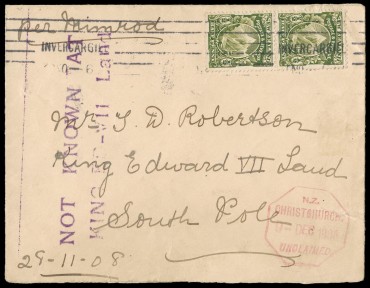 per Nimrod
INVERCARGIL
INVERCARGIL
NOT KNOWN AT
KING ED-VII Land
Mr. T. D. Robertson
King Edward VII Land
South Pole
29-11-08
N.Z.
CHRISTCHURCH
DEC
UNCLAIMED